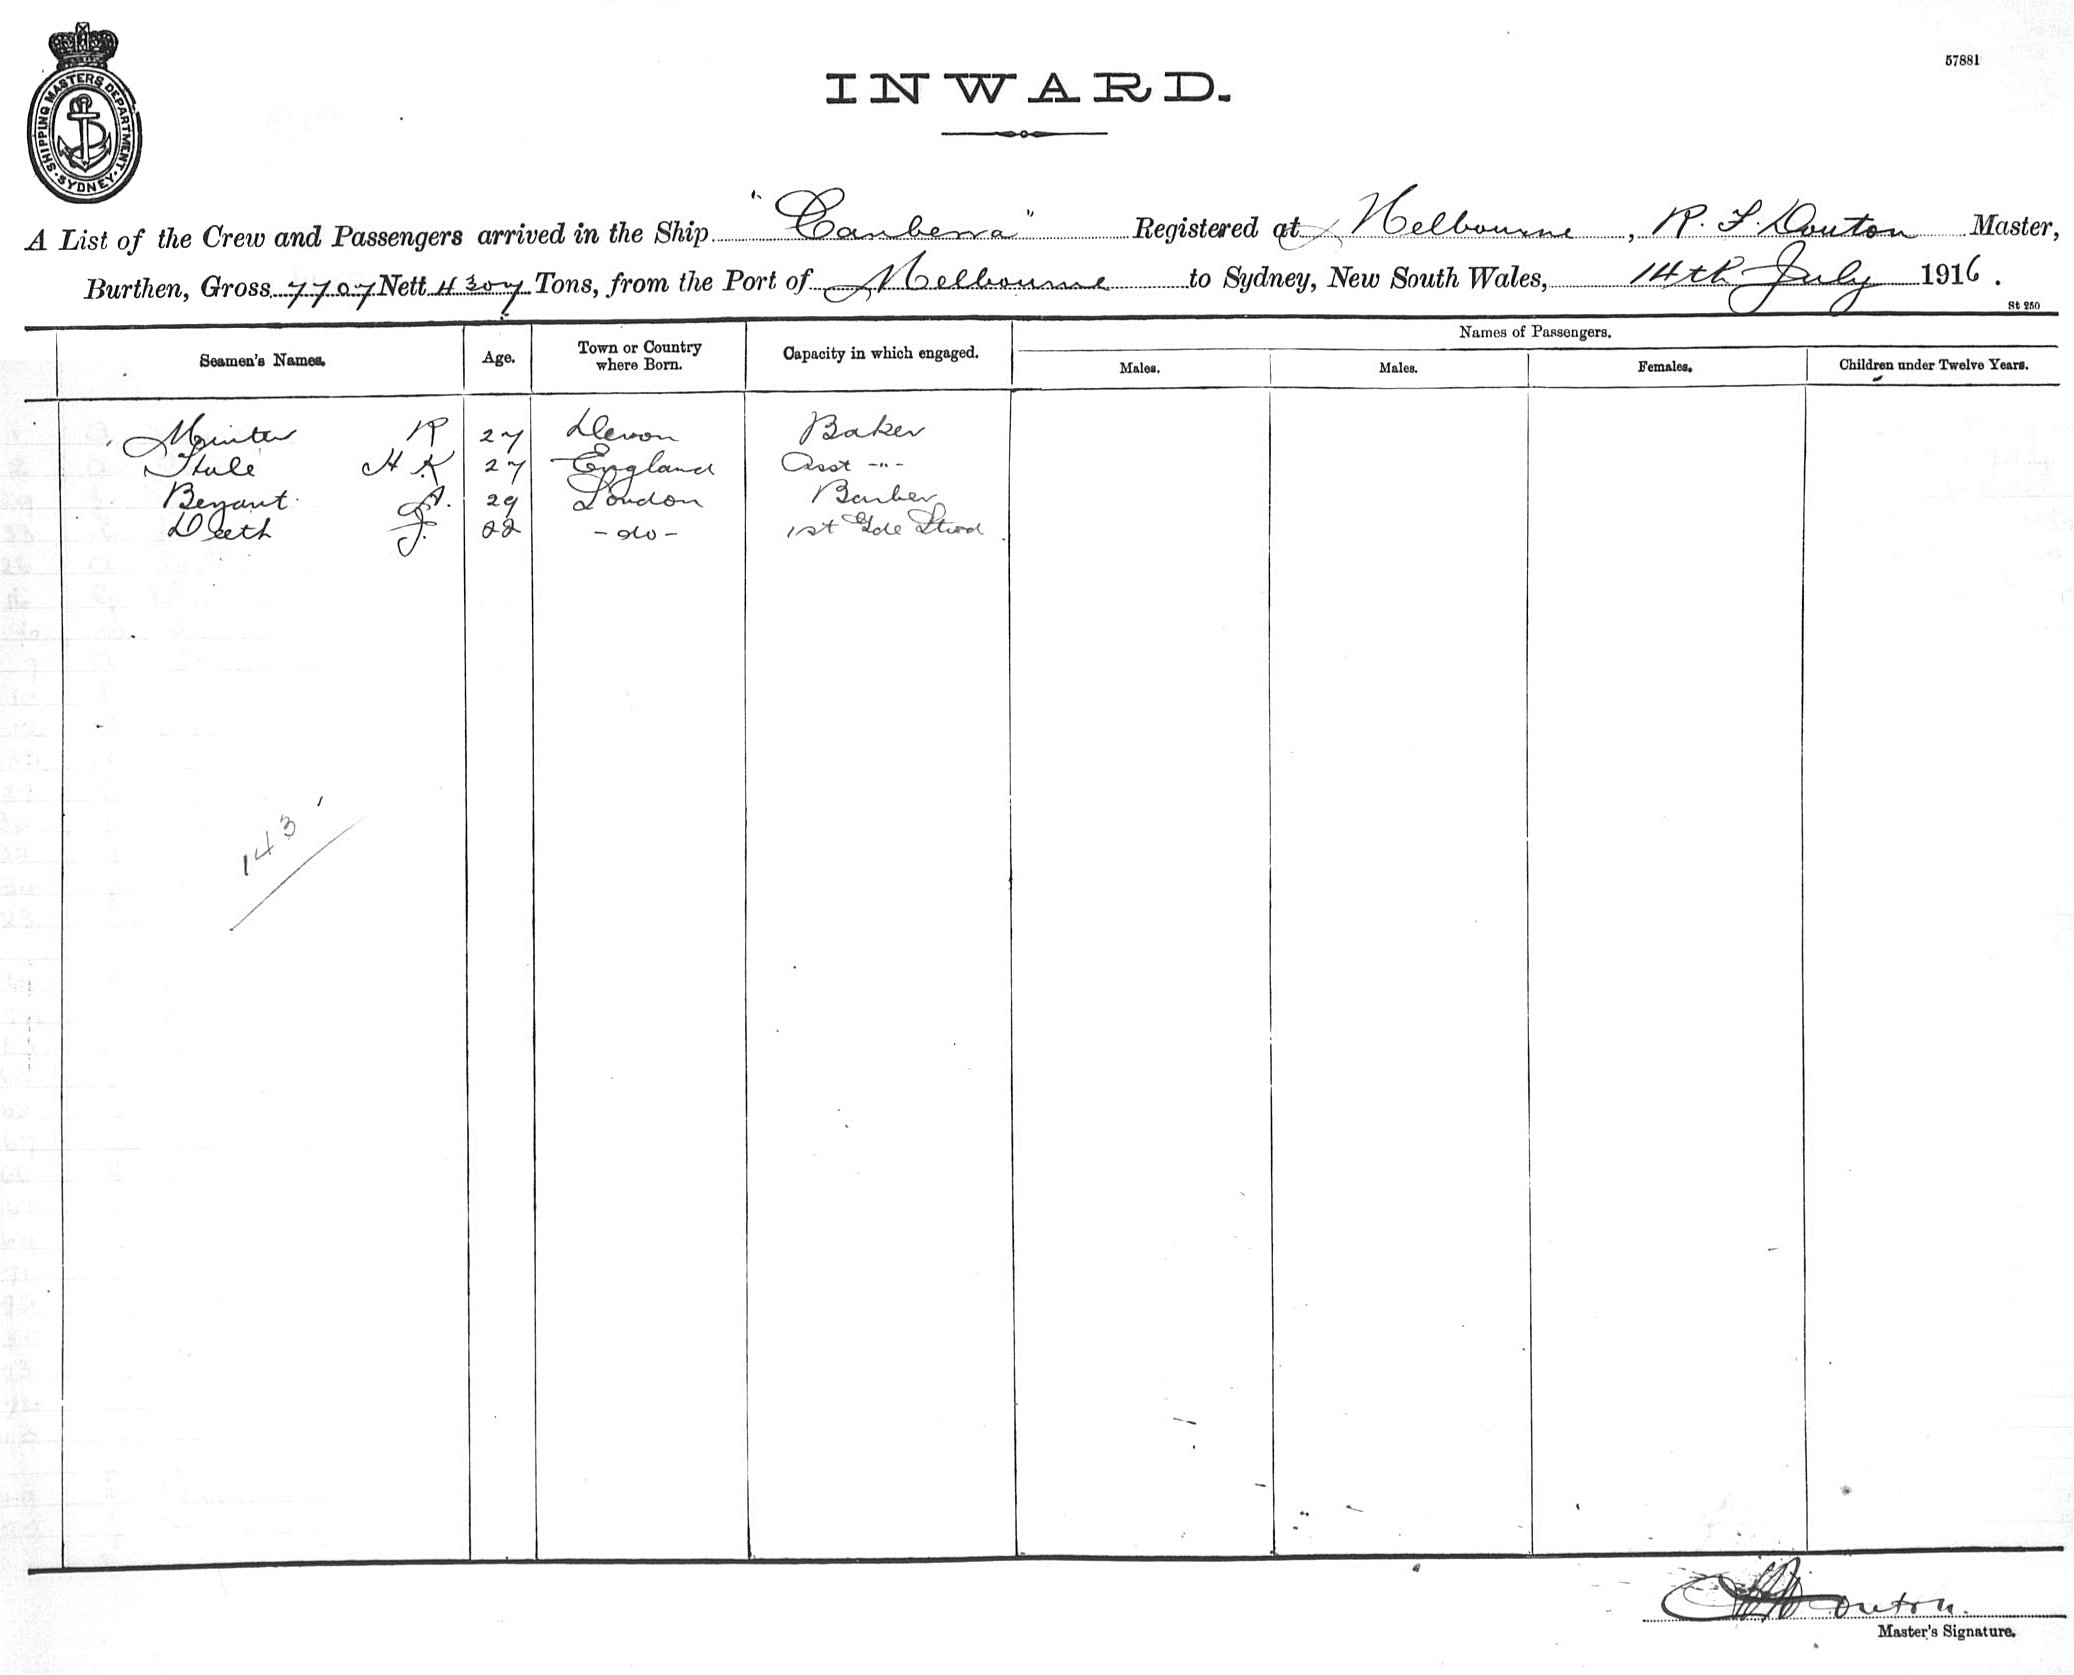 SHIPPING MASTERS DEPARTMENT · SYDNEY ·
57881
INWARD.
A List of the Crew and Passengers arrived in the Ship "Canberra" Registered at Melbourne, R. F. Douton Master,
Burthen, Gross 7707 Nett 4307 Tons, from the Port of Melbourne to Sydney, New South Wales, 14th July 1916.
St 250
Names of Passengers.
Seamen's Names. Age. Town or Country where Born. Capacity in which engaged. Males. Males. Females. Children under Twelve Years.
Minter R 27 Devon Baker
H K 27 England Asst -"-
Bryant 29 London Barber
Deeth J. 22 -do- 1st Gde Stwd
143
Douton
Master's Signature.